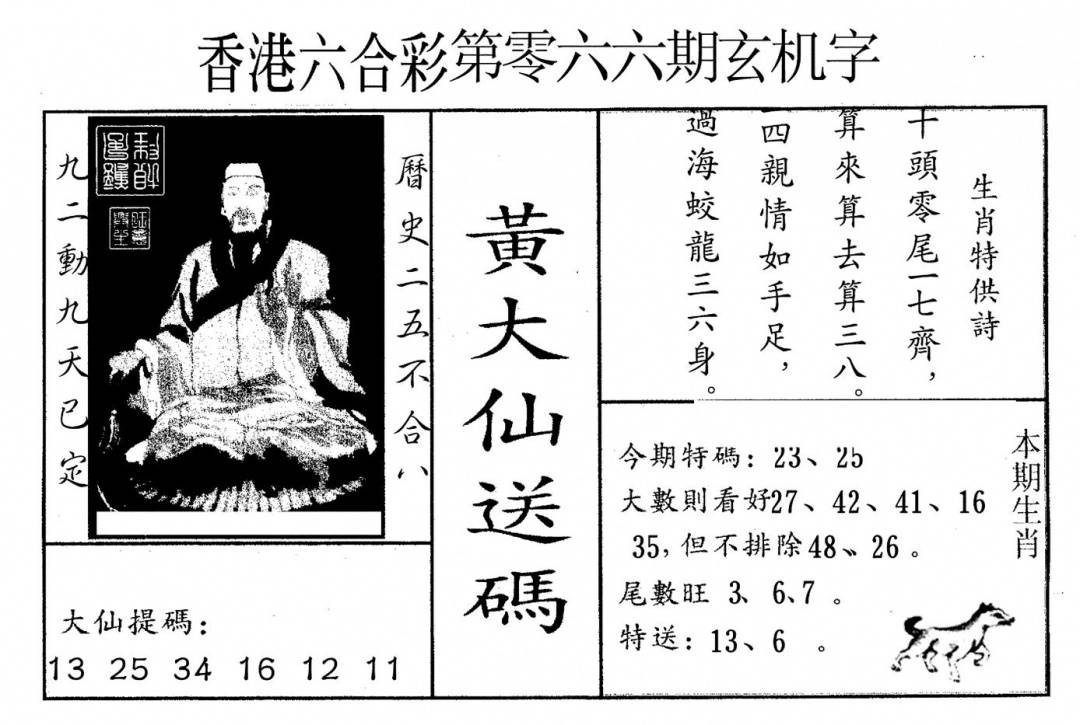 香港六合彩第零六六期玄机字
生肖特供詩
十頭零尾一七齊，
算來算去算三八。
四親情如手足，
過海蛟龍三六身。
黃大仙送碼
曆史二五不合八
九二動九天已定
大仙提碼：
13 25 34 16 12 11
本期生肖
今期特碼：23、25
大數則看好27、42、41、16
35，但不排除48、26。
尾數旺 3、6、7 。
特送：13、6 。